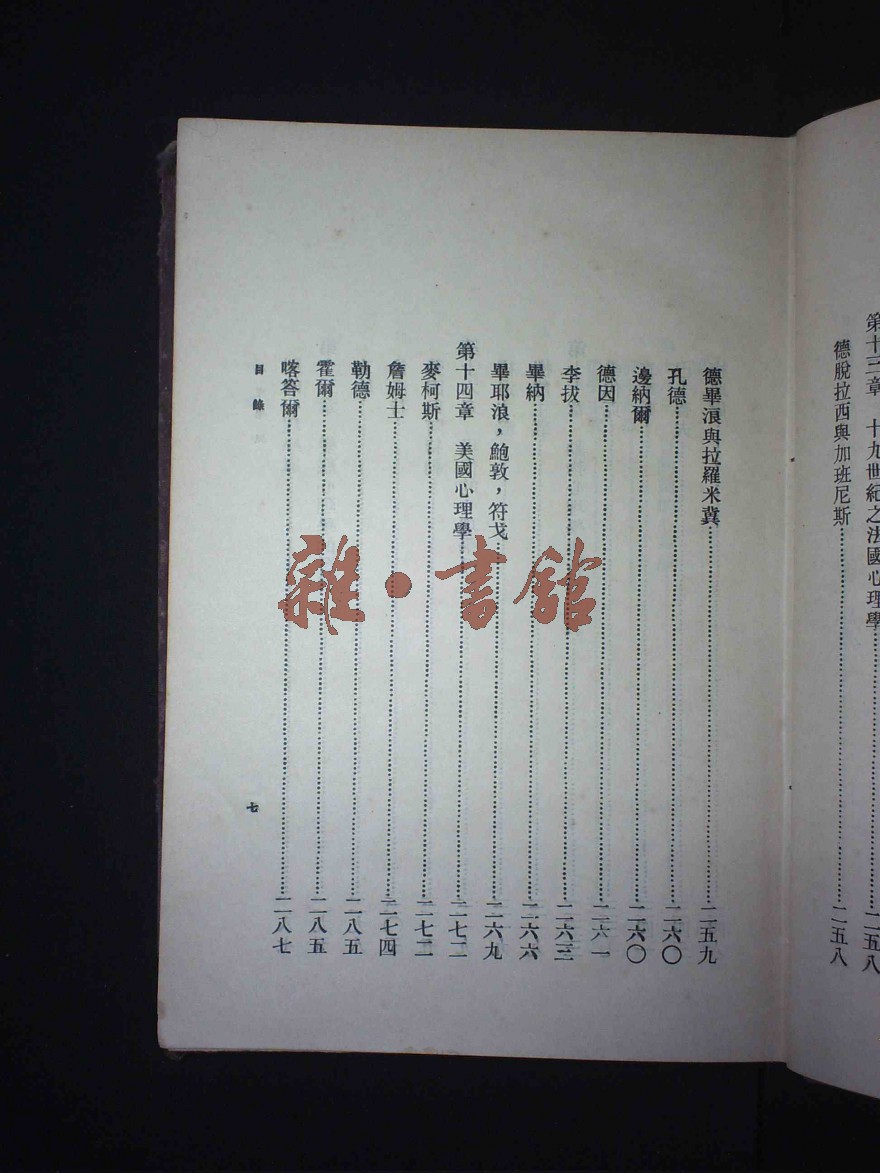 第十三章　十九世紀之法國心理學……二五八
德脫拉西與加班尼斯……二五八
德畢浪與拉羅米冀……二五九
孔德……二六〇
邊納爾……二六〇
德因……二六一
李拔……二六三
畢納……二六六
畢耶浪，鮑敦，符戈……二六九
第十四章　美國心理學……二七二
麥柯斯……二七二
詹姆士……二七四
勒德……二八五
霍爾……二八五
喀答爾……二八七
目錄
七
雜·書館